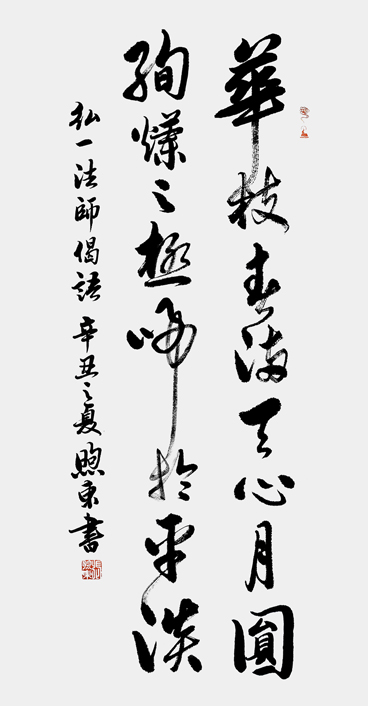 華枝春滿天心月圓
絢爛之極歸於平淡
弘一法師偈語 辛丑之夏 煦東書